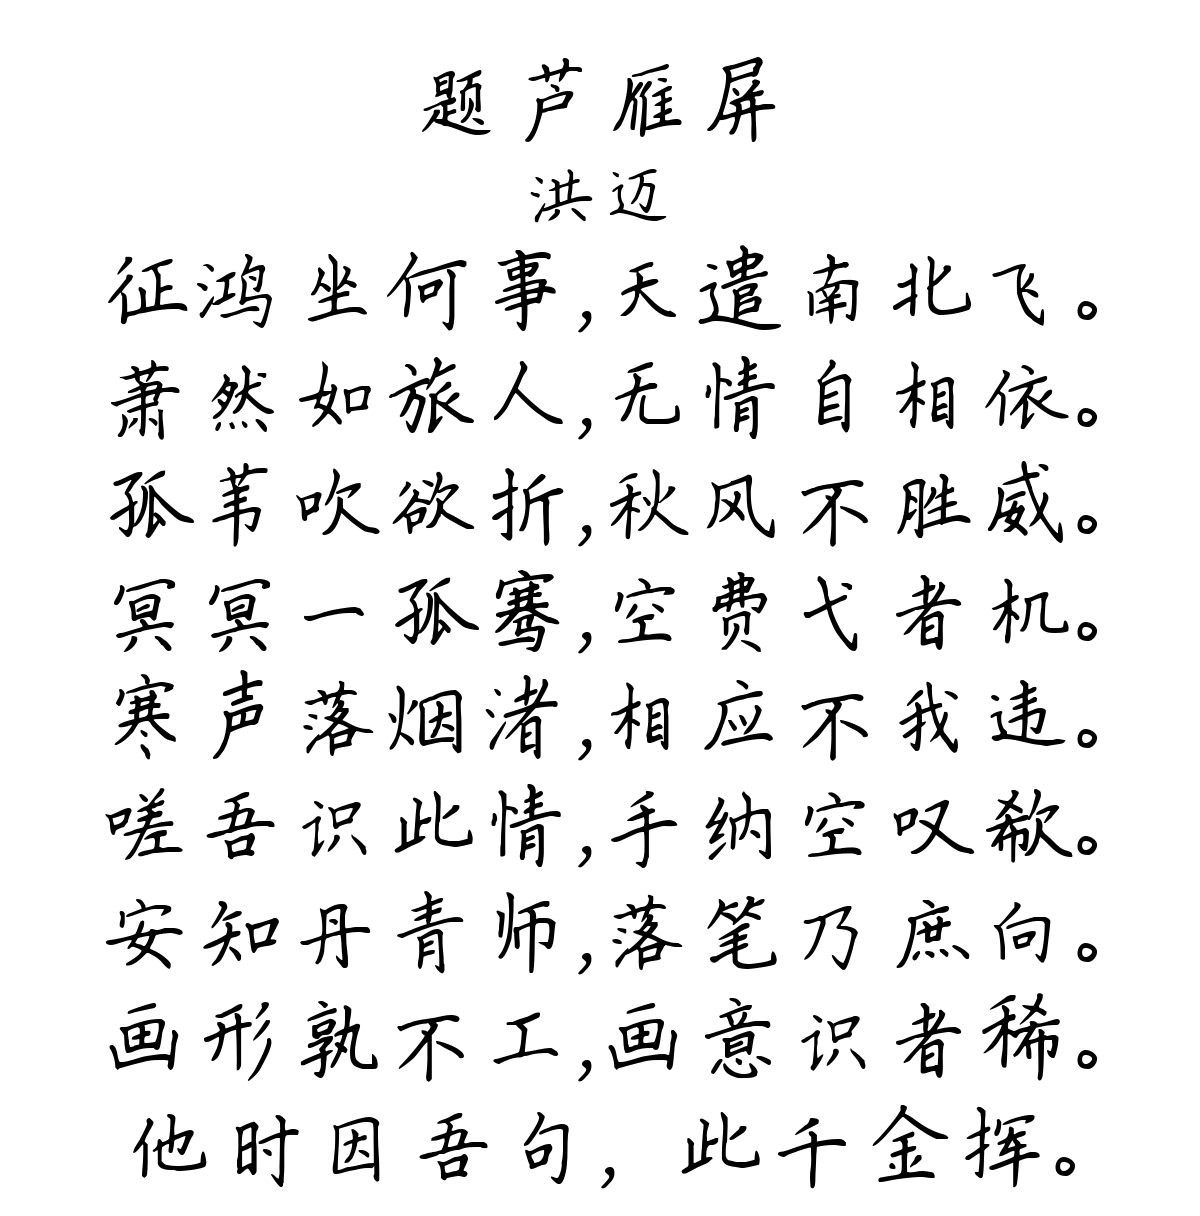 题芦雁屏
洪迈
征鸿坐何事,天遣南北飞。
萧然如旅人,无情自相依。
孤苇吹欲折,秋风不胜威。
冥冥一孤骞,空费弋者机。
寒声落烟渚,相应不我违。
嗟吾识此情,手纳空叹欷。
安知丹青师,落笔乃庶向。
画形孰不工,画意识者稀。
他时因吾句,此千金挥。